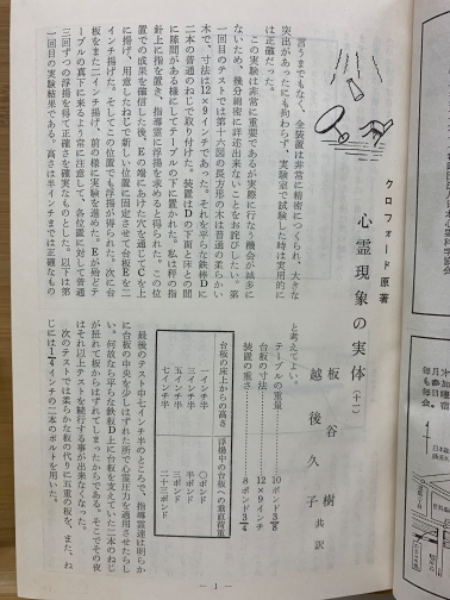 クロフォード原著
心霊現象の実体(十一)
板谷樹
越後久子 共訳
言うまでもなく、全装置は非常に精密につくられ、大きな
突出があったにも拘わらず、実験室で試験した時は実用的に
は正確だった。
この実験は非常に重要であるが実際に行なう機会が誠多に
ないため、幾分細密に詳述出来ないことをお詫びしたい。第
一回目のテストでは第十六図の長方形の木は普通の柔らかい
木で、寸法は12×9インチであった。それを平らな鉄棒Dに
二本の普通のねじで取り付けた。装置はDの下面と床との間
に隙間がある様にしてテーブルの下に置かれた。私は秤の指
針上に指を置き、指導霊に浮揚を求めると得られた。この位
置での成果を確信した後、Eの端にあけた穴を通じてCを上
に揚げ、用意したねじで新しい位置に固定させて台板Eを二
インチ揚げた。そしてこの位置でも浮揚が得られた。次に台
板をまた二インチ揚げ、前の様に実験を進めた。Eが殆どテ
ーブルの真下に来るよう常に注意して、各位置に対して普通
三回ずつの浮揚を得て正確さを確実なものとした。以下は第
一回目の実験結果である。高さは半インチまでは正確なもの
と考えてよい。
テーブルの重量 10ポンド3/8
台板の寸法 12×9インチ
装置の重さ 8ポンド3/4
台板の床上からの高さ 浮揚中の台板への垂直荷重
一インチ半 〇ポンド
三インチ半 半ポンド
五インチ半 三ポンド
七インチ半 二十三ポンド
最後のテスト中七インチ半のところで、指導霊達は明らか
に台板の中央を少しはずれた所で心霊圧力を適用させたらし
い。何故なら平らな鉄板D上に台板を支えていた二本のねじ
が捩れて板からはずれてしまったからである。そこでその夜
はそれ以上テストを続行する事が出来なかった。
次のテストでは柔らかな板の代りに五重の板を、また、ね
じには1/4インチの二本のボルトを用いた。
— 1 —
日本